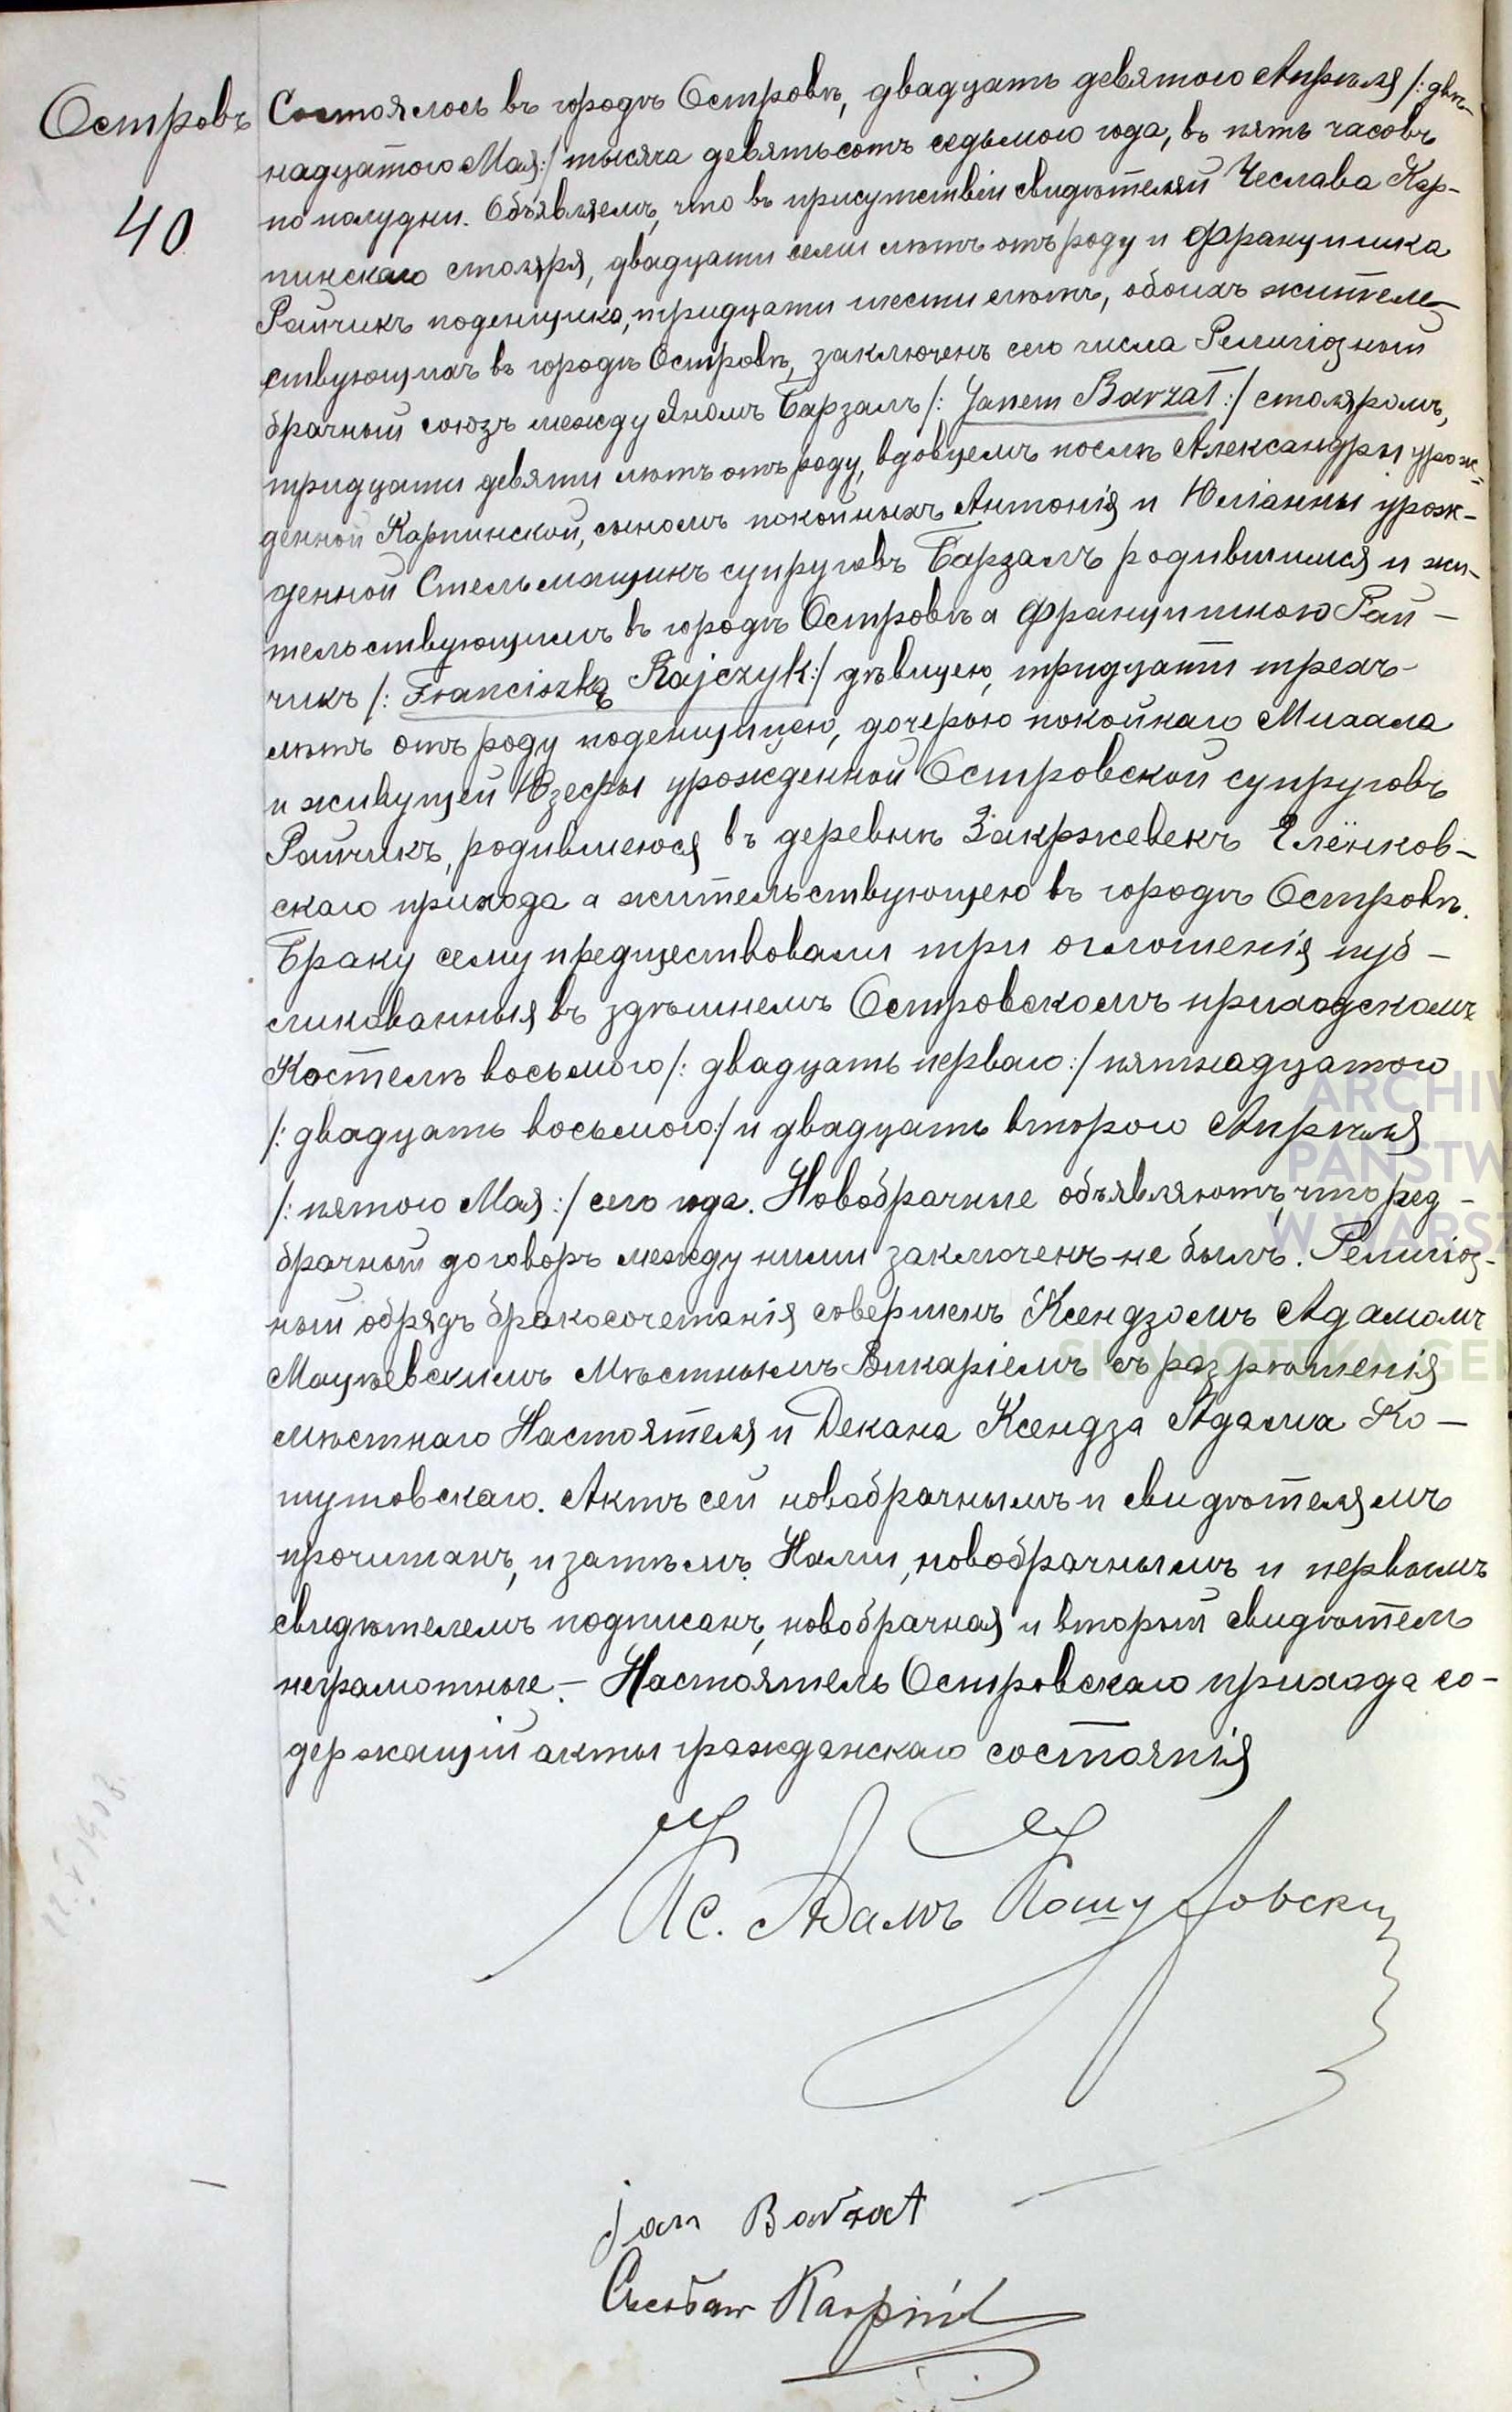 Островъ
40
Состоялось въ городѣ Островѣ, двадцать девятого Апрѣля /: двѣ-
надцатого Мая :/ тысяча девятьсотъ седьмого года, въ пять часовъ
по полудни. Объявляемъ, что въ присутствіи свидѣтелей Чеслава Кар-
пинскаго столяря, двадцати семи лѣтъ отъ роду и Францишка
Райчикъ поденщика, тридцати шести лѣтъ, обоихъ жителе-
ствующихъ въ городѣ Островѣ, заключенъ сего числа Религіозный
брачный союзъ между Яномъ Барзалъ /: Janem Barzał :/ столяромъ,
тридцати девяти лѣтъ отъ роду, вдовцемъ послѣ Александры урож-
денной Карпинской, сыномъ покойныхъ Антонія и Юліанны урож-
денной Стельмащикъ супруговъ Барзалъ родившимся и жи-
тельствующимъ въ городѣ Островѣ а Францишкою Рай-
чикъ /: Franciszką Rajczyk :/ дѣвицею, тридцати трехъ
лѣтъ отъ роду поденщицею, дочерью покойнаго Михала
и живущей Юзефы урожденной Островской супруговъ
Райчикъ, родившеюся въ деревнѣ Закржевекъ Еленков-
скаго прихода а жительствующею въ городѣ Островѣ.
Браку сему предшествовали три оглошенія пуб-
ликованныя въ здѣшнемъ Островскомъ приходскомъ
Костелѣ восьмого /: двадцать перваго :/ пятнадцатого
/: двадцать восьмого :/ и двадцать второго Апрѣля
/: пятого Мая :/ сего года. Новобрачные объявляютъ, что ред-
брачный договоръ между ними заключенъ не былъ. Религіоз-
ный обрядъ бракосочетанія совершенъ Ксендзомъ Адамомъ
Мацѣевскимъ Мѣстнымъ Викаріемъ съ разрѣшенія
мѣстнаго Настоятеля и Декана Ксендза Адама Ко-
шутовскаго. Актъ сей новобрачнымъ и свидѣтелямъ
прочитанъ, и затѣмъ Нами, новобрачнымъ и первымъ
свидѣтелемъ подписанъ, новобрачная и вторый свидѣтель
неграмотные. – Настоятель Островскаго прихода со-
держащій акты гражданскаго состоянія
Кс. Адамъ Кошутовски
Jan Barzał
Czesław Karpiń
ARCHIW
PAŃSTW
W WARSZ
SKANOTEKA GEN